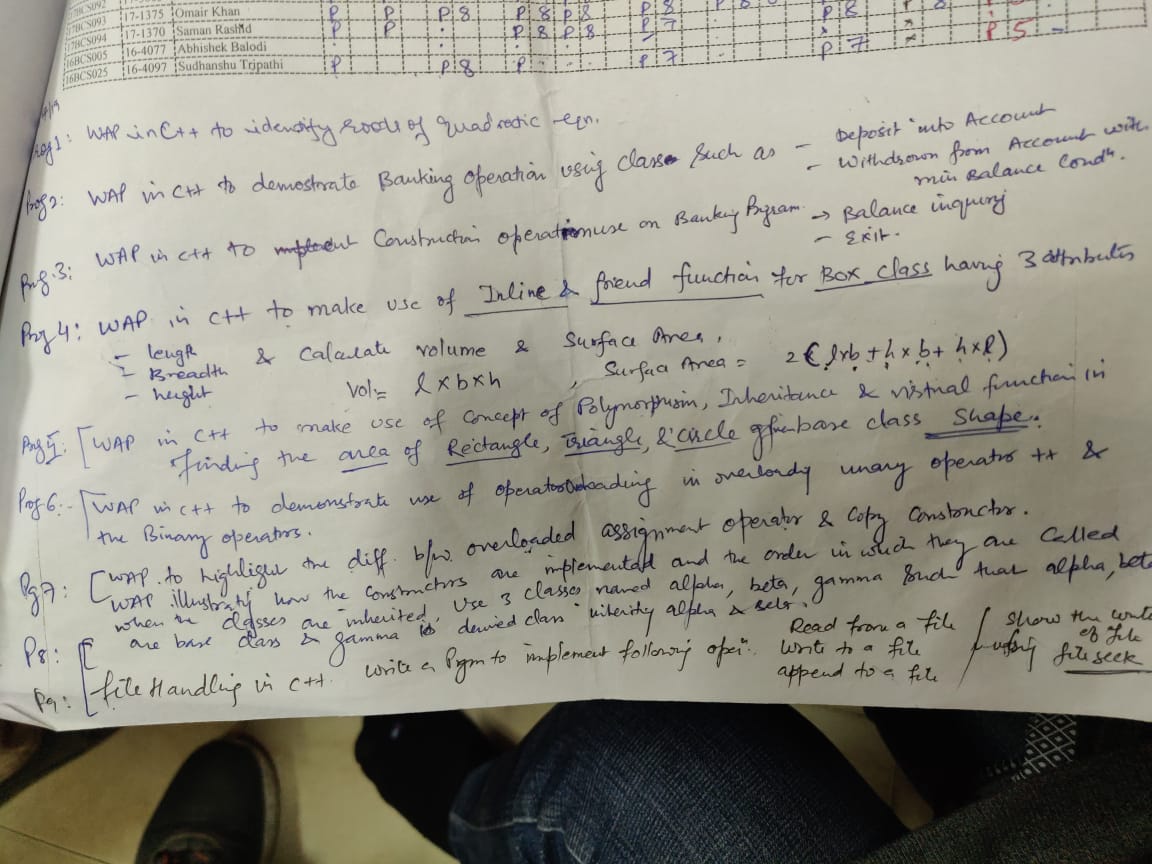 17BCS092 17-1375 Omair Khan P P P 8 P 8 P 8 P 8 P 8
17BCS093 17-1370 Saman Rashid P P P 8 P 8 P 7
17BCS094
16BCS005 16-4077 Abhishek Balodi P 7 P 5
16BCS025 16-4097 Sudhanshu Tripathi P P 8 P P 7
Prog 1: WAP in C++ to identify roots of quadratic eqn.
Prog 2: WAP in C++ to demostrate Banking operation using class such as – Deposit into Account
– Withdrown from Account with
min Balance Condn.
→ Balance inquiry
– Exit.
Prog.3: WAP in C++ to Construction operation use on Banking Prgram
Prg 4: WAP in C++ to make use of Inline & friend function for Box class having 3 attributes
– length & Calculate volume & Surface Area,
– Breadth
– height Vol = l x b x h, Surface Area = 2(lxb + h x b + h x l)
Prg 5: [WAP in C++ to make use of concept of Polymorphism, Inheritance & virtual function in
finding the area of Rectangle, Triangle, & circle from base class Shape.
Prg 6:- [WAP in C++ to demonstrate use of operator Overloading in overloadg unary operator ++ &
the Binary operators.
Pg 7: [WAP to highlight the diff. b/w overloaded assignment operator & Copy Constructor.
P8: [WAP illustratg how the constructors are implemented and the order in which they are Called
when the classes are inherited. Use 3 classes named alpha, beta, gamma Such that alpha, beta
are base class & gamma is derived class inheritig alpha & beta.
P9: [file Handling in C++. write a Prgm to implement following oper:
Read from a file
write to a file
append to a file
show the
of file
using file seek